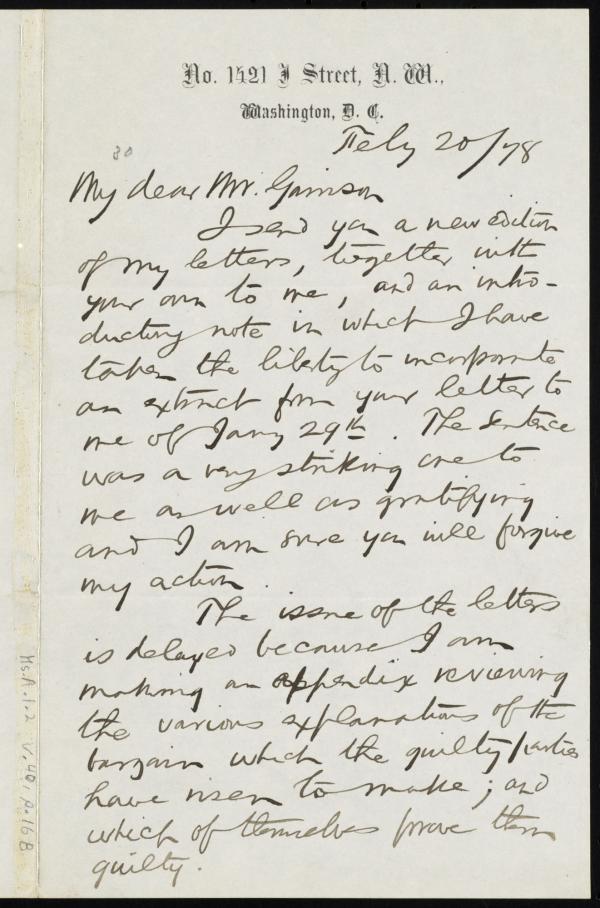 No. 1421 I Street, N. W.,
Washington, D. C.
Feby 20/78
30
My dear Mr. Garrison
I send you a new edition
of my letters, together with
your own to me, and an intro-
ductory note in which I have
taken the liberty to incorporate
an extract from your letter to
me of Jany 29th. The sentence
was a very striking one to
me as well as gratifying
and I am sure you will forgive
my action.
The issue of the letters
is delayed because I am
making an appendix reviewing
the various explanations of the
bargain which the guilty parties
have risen to make; and
which of themselves prove them
guilty.
Ms.A.1.2 v.40, p.16B